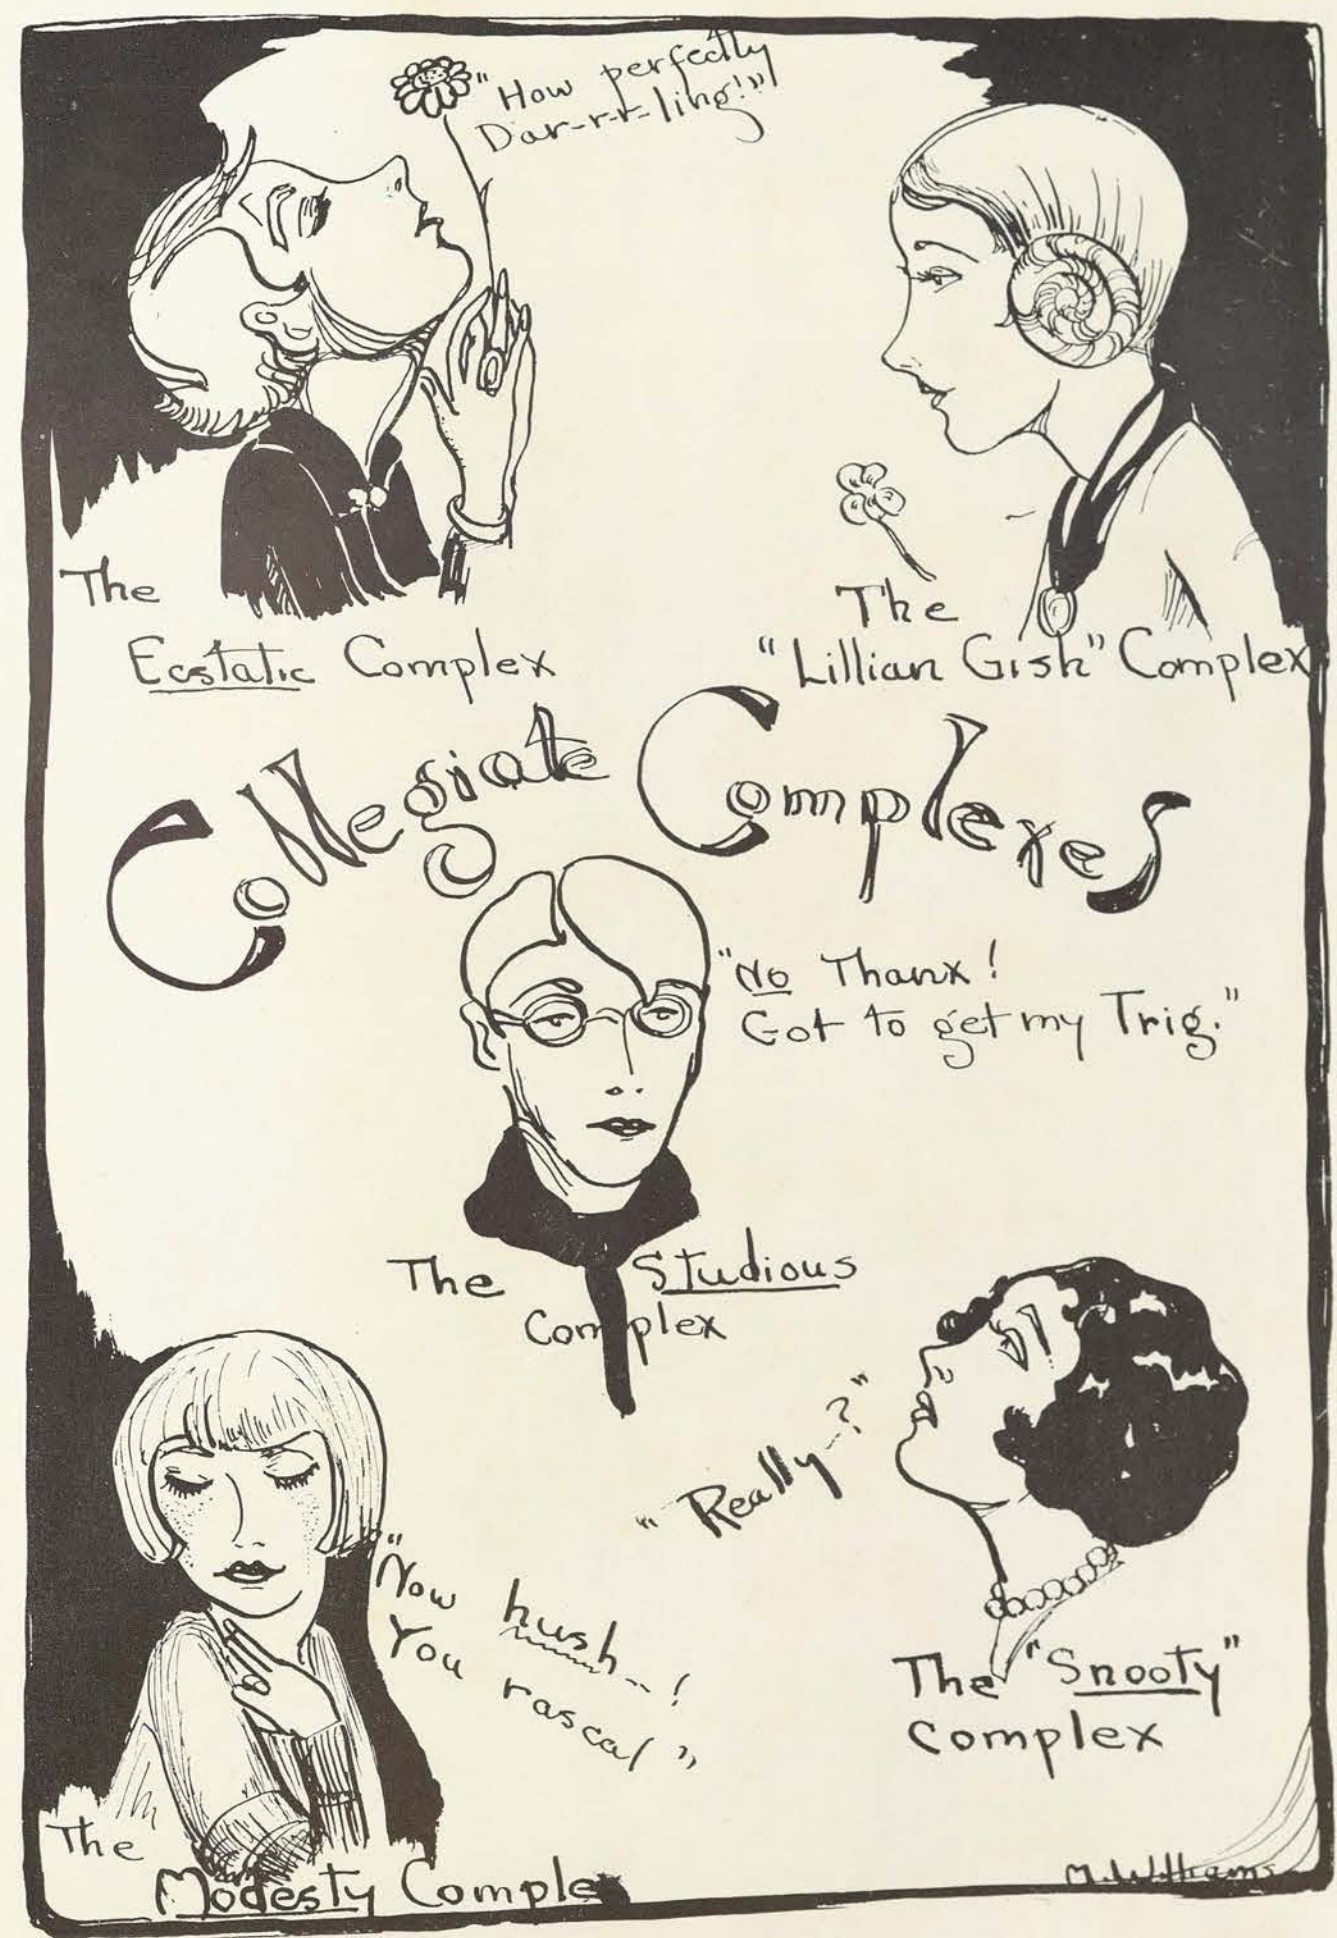 "How perfectly
Dar-r-r-ling!"
The
Ecstatic Complex
The
"Lillian Gish" Complex
Collegiate Complexes
"No Thanx!
Got to get my Trig."
The Studious
Complex
"Really-?"
The "Snooty"
Complex
"Now hush--!
You rascal"
The
Modesty Complex
M. Williams